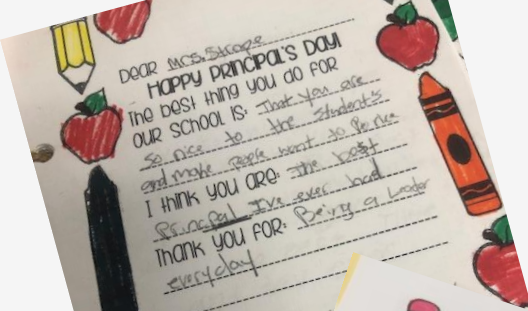 DEAR Mrs. Strope
HAPPY PRINCIPAL'S DAY!
THE BEST THING YOU DO FOR
OUR SCHOOL IS: That you are
so nice to the student's
and make people want to be nice
I THINK YOU ARE: The best
Principal I've ever had
THANK YOU FOR: Being a Leader
everyday